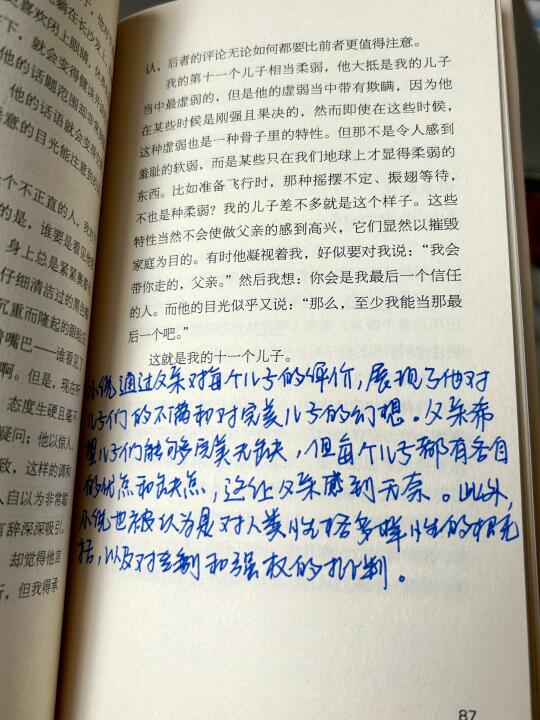 躺在长沙发上
喜欢闭上眼睛
下，就会变得健谈
他的话题范围却非常
他的话语就会变得
意的目光能注意到的
个不正直的人，我
的是，谁要是看见他
身上总是紧紧裹着
仔细清洁过的黑色
沉重而隆起的
嘴巴——谁看见了
啊。但是，现在
态度生硬且毫不
疑问；他以惊人
致，这样的调和
人自以为非常聪
言辞深深吸引，
却觉得他言
行，但我得承
认，后者的评论无论如何都要比前者更值得注意。
我的第十一个儿子相当柔弱，他大抵是我的儿子
当中最虚弱的，但是他的虚弱当中带有欺瞒，因为他
在某些时候是刚强且果决的，然而即使在这些时候，
这种虚弱也是一种骨子里的特性。但那不是令人感到
羞耻的软弱，而是某些只在我们地球上才显得柔弱的
东西。比如准备飞行时，那种摇摆不定、振翅等待，
不也是种柔弱？我的儿子差不多就是这个样子。这些
特性当然不会使做父亲的感到高兴，它们显然以摧毁
家庭为目的。有时他凝视着我，好似要对我说：“我会
带你走的，父亲。”然后我想：你会是我最后一个信任
的人。而他的目光似乎又说：“那么，至少我能当那最
后一个吧。”
这就是我的十一个儿子。
小说通过父亲对每个儿子的评价，展现了他对
儿子们的不满和对完美儿子的幻想。父亲希
望儿子们能够完美无缺，但每个儿子都有各自
的优点和缺点，这让父亲感到无奈。此外，
小说也被认为是对人类性格多样性的概
括，以及对专制和强权的批判。
87